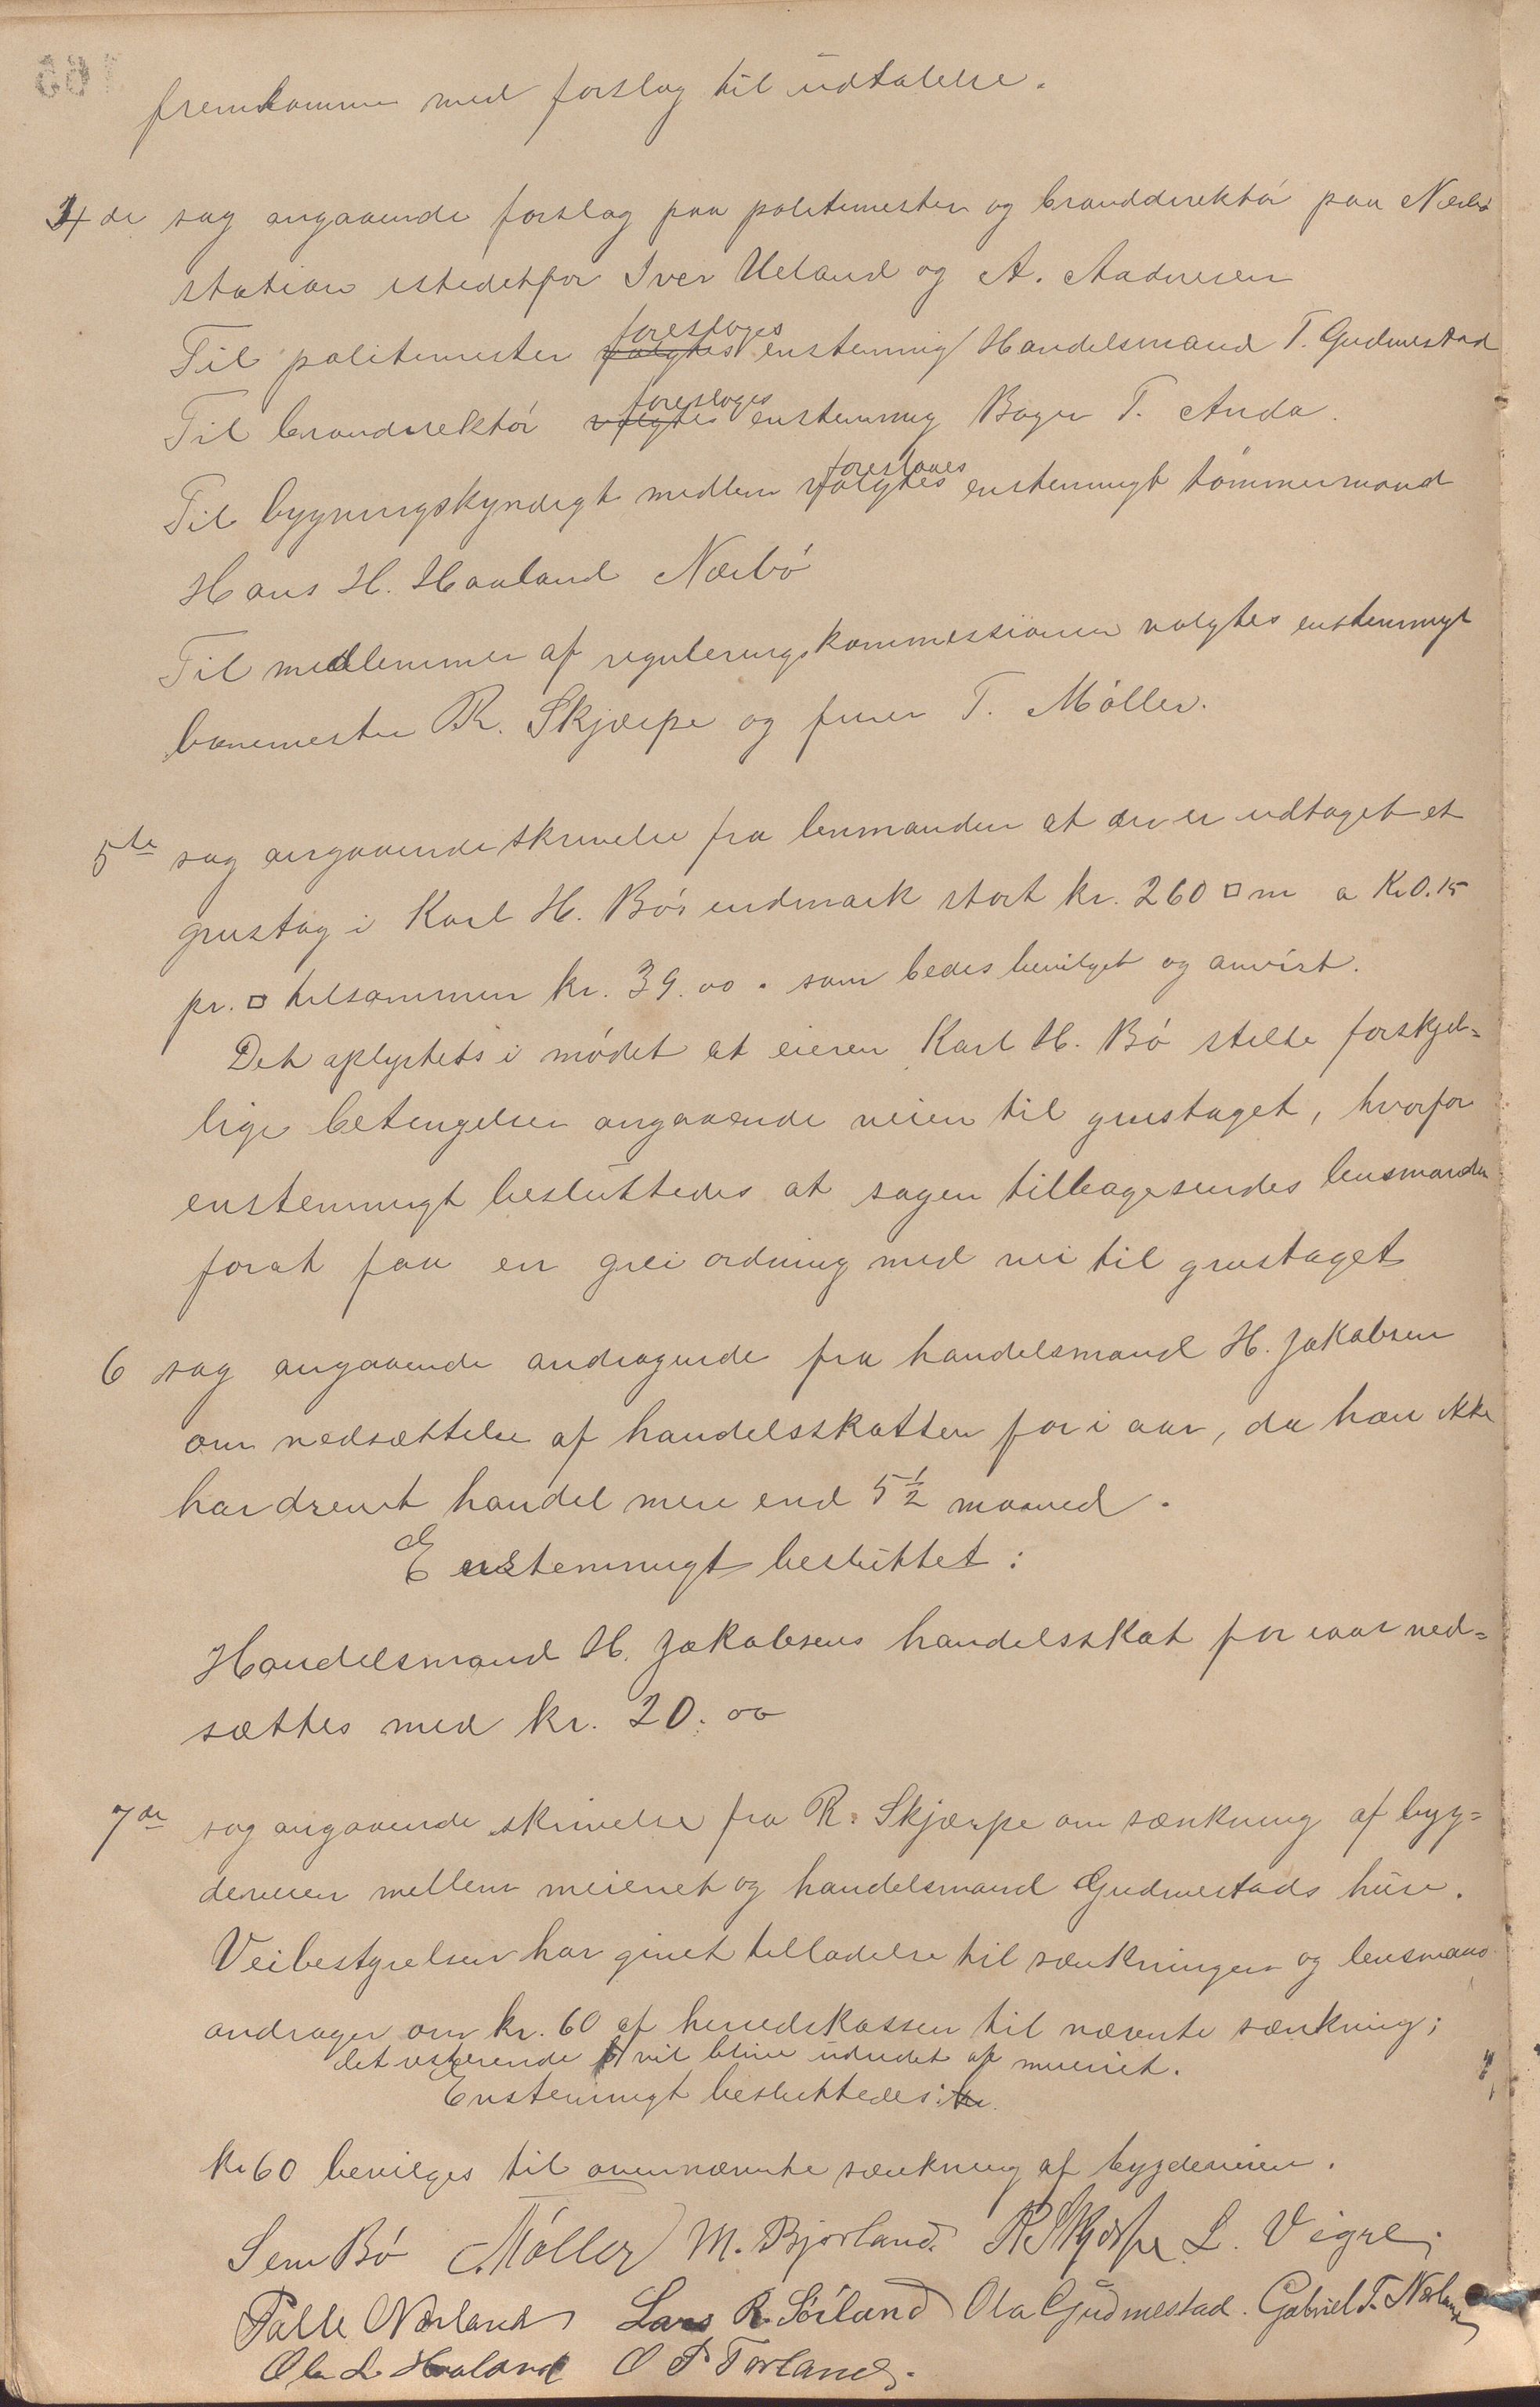 fremkomme med forslag til udtalelse.
4de sag angaaende forslag paa politimester og branddirektör paa Nærbö
station istedetfor Iver Ueland og A. Aadnesen
foreslages
Til politimester valgtes enstemmig Handelsmand T. Gudmestad
foreslages
Til brandirektör valgtes enstemmig Bager T. Anda.
foreslaaes
Til bygningskyndigt medlem valgtes enstemmigt tömmermand
Hans H. Haaland Nærbö
Til medlemmer af reguleringskommessionen valgtes enstemmigt
banemester R. Skjærpe og furer T. Möller.
5te sag angaaende skrivelse fra lenmanden at der er udtaget et
grustag i Karl H. Bös udmark stort kr. 260 □ m a Kr 0.15
pr. □ tilsammen kr. 39.00. som bedes bevilget og anvist.
Det oplystets i mödet at eieren Karl H. Bö stilte forskjel=
lige betingelser angaaende veien til grustaget, hvorfor
enstemmigt besluttedes at sagen tilbagesendes lensmanden
forat faa en grei ordning med vei til grustaget
6 sag angaaende andragende fra handelsmand H. Jakobsen
om nedsættelse af handelsskatten for i aar, da han ikke
har drevet handel mere end 5 1/2 maaned.
Enstemmigt besluttet:
Handelsmand H. Jakobsens handelsskat for iaar ned=
sættes med kr. 20.00
7de sag angaaende skrivelse fra R. Skjærpe om sænkning af byg=
deveien mellem meieriet og handelsmand Gudmestads huse.
Veibestyrelsen har givet tilladelse til sænkningen og lensmand
andrager om kr. 60 af herredskassen til nævnte sænkning;
det resterende vil blive udredet af meieriet.
Enstemmigt besluttedes: kr
Kr 60 bevilges til ovennævnte sænkning af bygdeveien.
Sem Bö Möller M. Bjorland. R Skjærpe L. Vigre.
Palle Nærland Lars R. Sörland Ola Gudmestad. Gabriel T. Nærland
Ole L Haaland O P Torland.